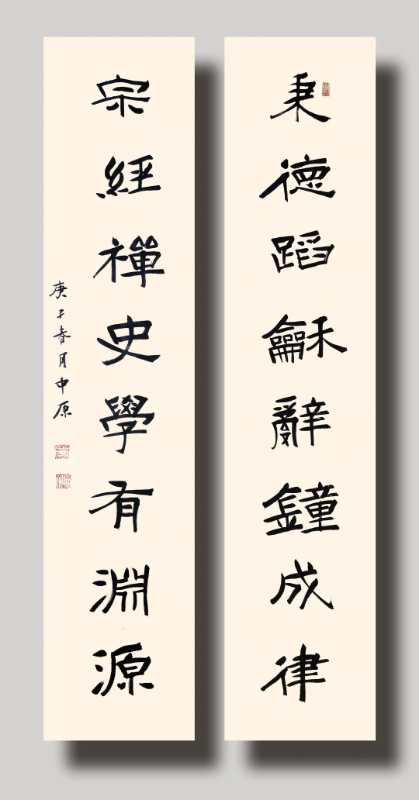 秉德蹈龢辭鐘成律
宗經禪史學有淵源
庚子春月中原